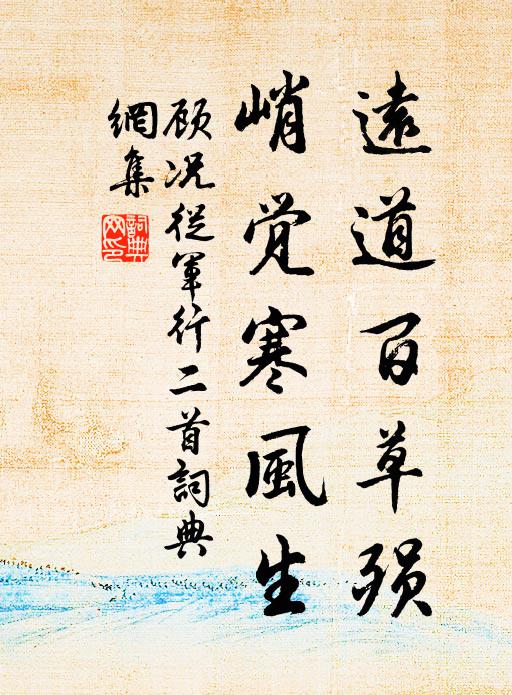 遠道百草殞
峭觉寒風生
顾况従軍行二首詞典
網集
詞典網印